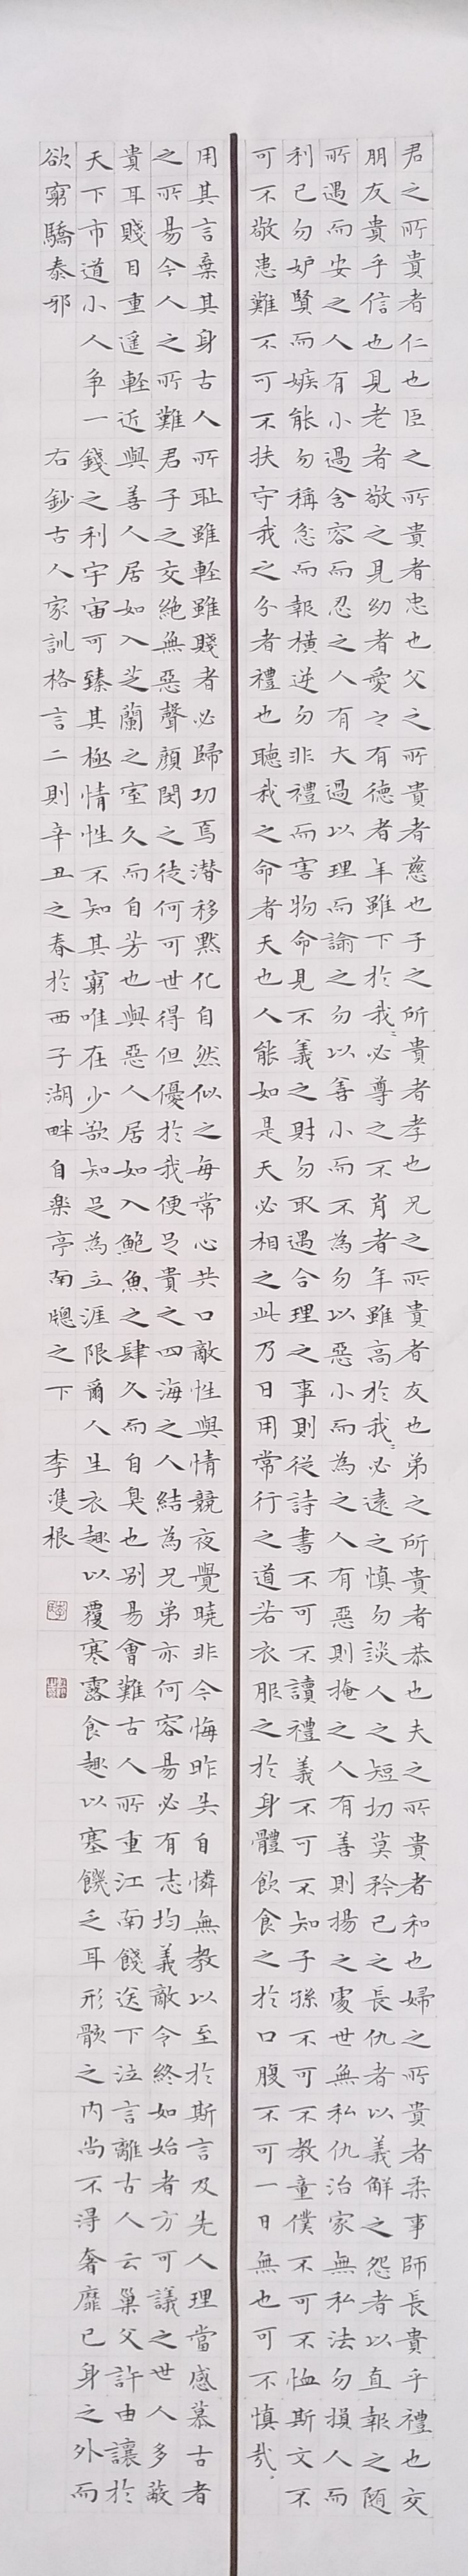 君之所貴者仁也臣之所貴者忠也父之所貴者慈也子之所貴者孝也兄之所貴者友也弟之所貴者恭也夫之所貴者和也婦之所貴者柔事師長貴乎禮也交
朋友貴乎信也見老者敬之見幼者愛之有德者年雖下於我我必尊之不肖者年雖高於我我必遠之慎勿談人之短切莫矜己之長仇者以義解之怨者以直報之隨
所遇而安之人有小過含容而忍之人有大過以理而諭之勿以善小而不為勿以惡小而為之人有惡則掩之人有善則揚之處世無私仇治家無私法勿損人而
利己勿妒賢而嫉能勿稱忿而報橫逆勿非禮而害物命見不義之財勿取遇合理之事則從詩書不可不讀禮義不可不知子孫不可不教童僕不可不恤斯文不
可不敬患難不可不扶守我之分者禮也聽我之命者天也人能如是天必相之此乃日用常行之道若衣服之於身體飲食之於口腹不可一日無也可不慎哉
用其言棄其身古人所恥雖輕雖賤者必歸功焉潛移黙化自然似之每常心共口敵性與情競夜覺曉非今悔昨失自憐無教以至於斯言及先人理當感慕古者
之所易今人之所難君子之交絕無惡聲顏閔之徒何可世得但優於我便足貴之四海之人結為兄弟亦何容易必有志均義敵令終如始者方可議之世人多蔽
貴耳賤目重遥輕近與善人居如入芝蘭之室久而自芳也與惡人居如入鮑魚之肆久而自臭也别易會難古人所重江南餞送下泣言離古人云巢父許由讓於
天下市道小人争一錢之利宇宙可臻其極情性不知其窮唯在少欲知足為立涯限爾人生衣趣以覆寒露食趣以塞饑乏耳形骸之内尚不得奢靡己身之外而
欲窮驕泰邪 右鈔古人家訓格言二則辛丑之春於西子湖畔自樂亭南牕之下 李雙根